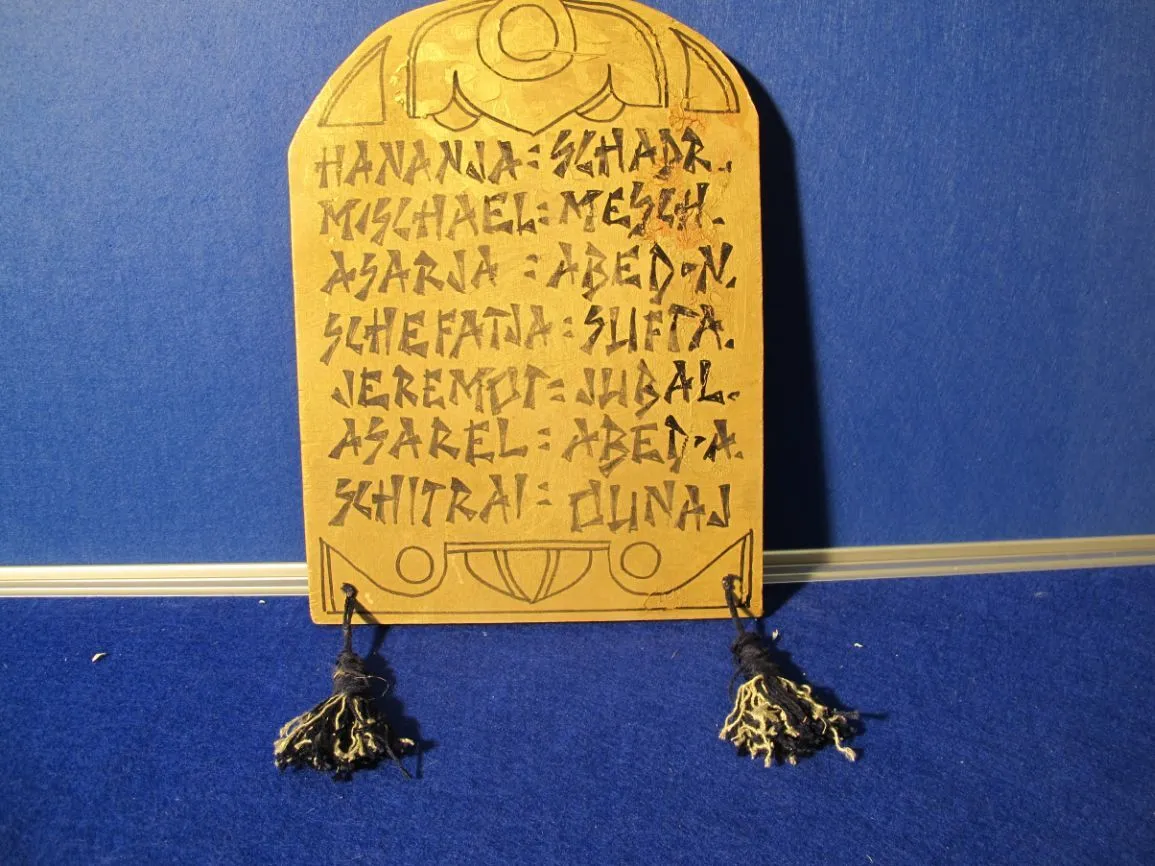 HANANJA: SCHADR.
MISCHAEL: MESCH.
ASARJA : ABED-N.
SCHEFATJA: SUFTA.
JEREMOT: JUBAL.
ASAREL: ABED-A.
SCHITRAI: OUNAJ